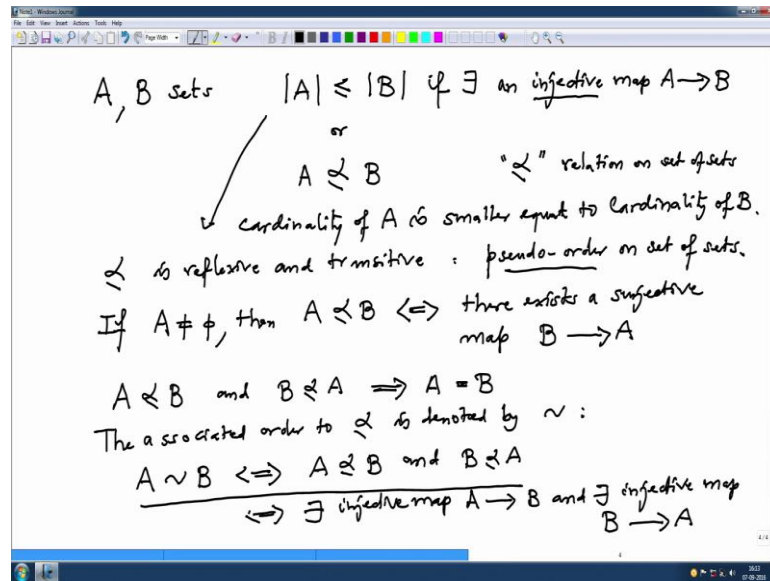 Note1 - Windows Journal
File Edit View Insert Actions Tools Help
Page Width
A, B sets |A| ≤ |B| if ∃ an injective map A → B
or
A ≼ B "≼" relation on set of sets
cardinality of A is smaller equal to Cardinality of B.
≼ is reflexive and transitive : pseudo-order on set of sets.
If A ≠ ϕ, then A ≼ B <=> there exists a surjective
map B → A
A ≼ B and B ≼ A => A = B
The associated order to ≼ is denoted by ~ :
A ~ B <=> A ≼ B and B ≼ A
<=> ∃ injective map A → B and ∃ injective map
B → A
4/4
4
16:13
07-09-2016